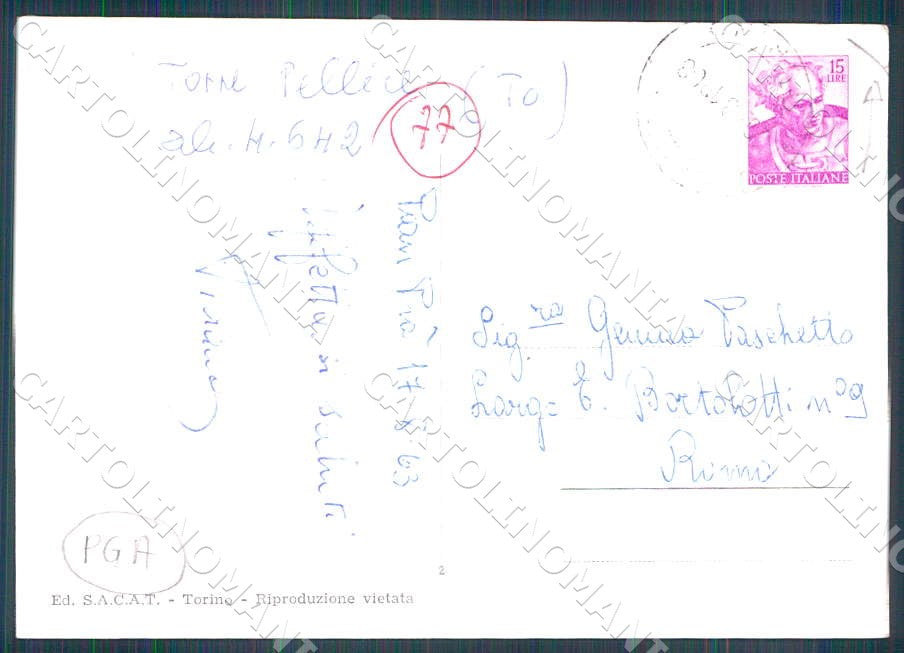 Torre Pellice (To)
alt. m. 642
77
15
LIRE
POSTE ITALIANE
Pian Prà 17 8 63
Affettuosi saluti
Sig.ra Gemma Paschetto
Largo E. Bortolotti n° 9
Roma
PGA
2
Ed. S.A.C.A.T. - Torino - Riproduzione vietata
CARTOLINOMANIA